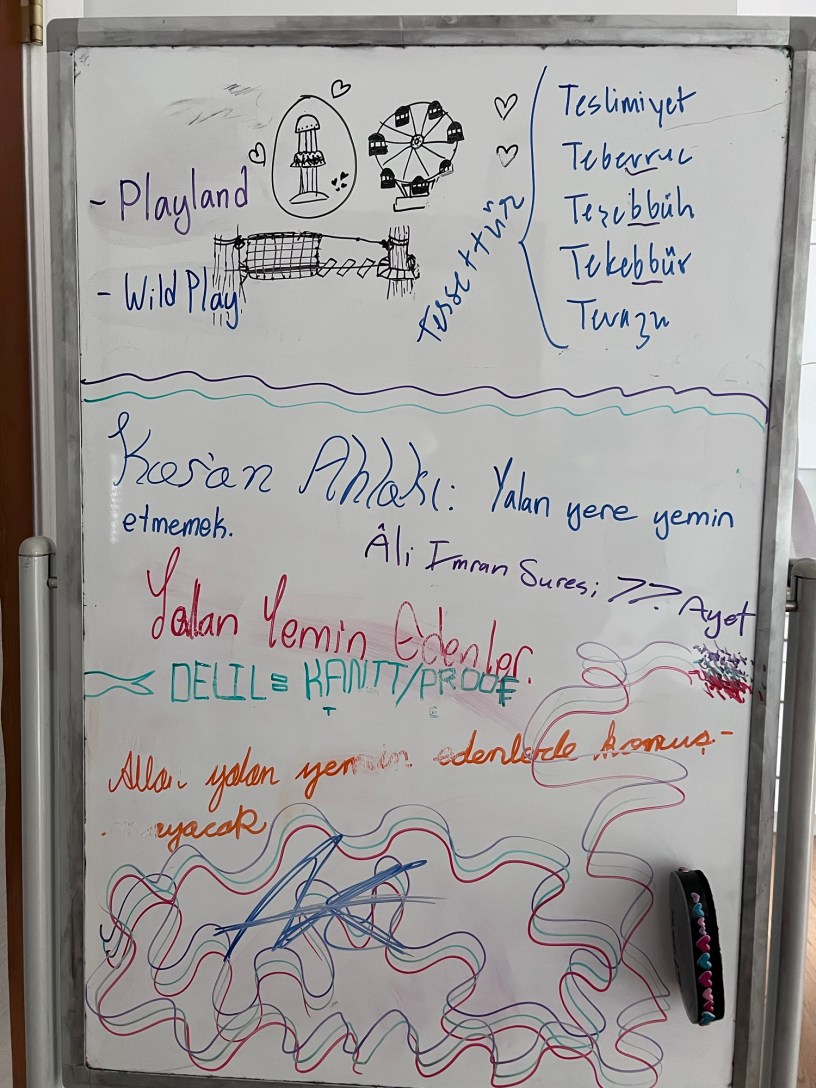 - Playland
- Wild Play
Tessettür
Teslimiyet
Teberruc
Teşebbüh
Tekebbür
Tevazu
Kur'an Ahlakı: Yalan yere yemin
etmemek.
Âli İmran Suresi 77. Ayet
Yalan Yemin Edenler.
DELIL = KANIT/PROOF
yalan yemin edenlerle konuş-